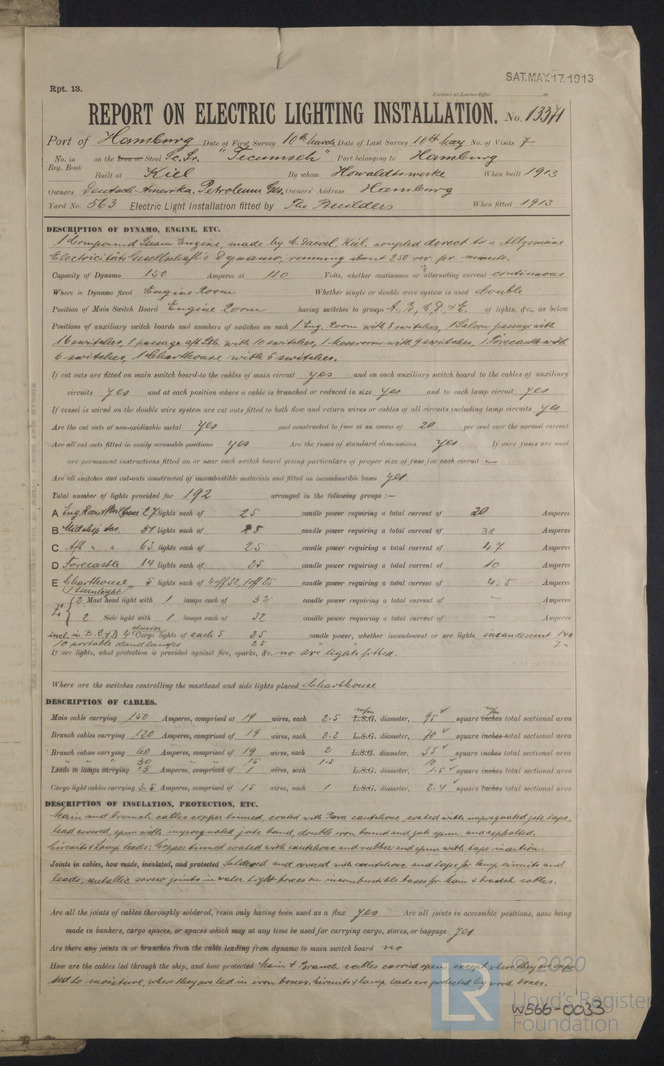 SAT. MAY. 17. 1913
Rpt. 13.
REPORT ON ELECTRIC LIGHTING INSTALLATION. No. 13371
Port of Hamburg Date of First Survey 10th March Date of Last Survey 10th May No. of Visits 7
No. in Reg. Book on the Iron or Steel Sc. Sr. "Tecumseh" Port belonging to Hamburg
Built at Kiel By whom Howaldtswerke When built 1913
Owners Deutsch-Amerika. Petroleum Ges. Owners' Address Hamburg
Yard No. 563 Electric Light Installation fitted by The Builders When fitted 1913
DESCRIPTION OF DYNAMO, ENGINE, ETC.
1 Compound Steam Engine, made by C. Daevel, Kiel, coupled direct to a Allgemeine
Electricitäts Gesellschaft's Dynamo, running about 250 rev. pr. minute.
Capacity of Dynamo 150 Amperes at 110 Volts, whether continuous or alternating current continuous
Where is Dynamo fixed Engine Room Whether single or double wire system is used double
Position of Main Switch Board Engine Room having switches to groups A, B, C, D, & E. of lights, &c., as below
Positions of auxiliary switch boards and numbers of switches on each 1 Eng. Room with 8 switches, 1 Saloon passage with
16 switches, 1 passage aft with 10 switches, 1 with 9 switches, 1 Forecastle with
6 switches, 1 Charthouse with 5 switches.
If cut outs are fitted on main switch board to the cables of main circuit yes and on each auxiliary switch board to the cables of auxiliary
circuits yes and at each position where a cable is branched or reduced in size yes and to each lamp circuit yes
If vessel is wired on the double wire system are cut outs fitted to both flow and return wires or cables of all circuits including lamp circuits yes
Are the cut outs of non-oxidizable metal yes and constructed to fuse at an excess of 20 per cent over the normal current
Are all cut outs fitted in easily accessible positions yes Are the fuses of standard dimensions yes If wire fuses are used
are permanent instructions fitted on or near each switch board giving particulars of proper size of fuse for each circuit —
Are all switches and cut-outs constructed of incombustible materials and fitted on incombustible bases yes
Total number of lights provided for 192 arranged in the following groups :—
A Eng. Room & Boil. Room 27 lights each of 25 candle power requiring a total current of 20 Amperes
B Midship acc. 51 lights each of 25 candle power requiring a total current of 38 Amperes
C Aft " " 63 lights each of 25 candle power requiring a total current of 47 Amperes
D Forecastle 14 lights each of 25 candle power requiring a total current of 10 Amperes
E Charthouse 5 lights each of 4 off 32, 1 off 25 candle power requiring a total current of 4.5 Amperes
1 Sternlight
2 Mast head light with 1 lamps each of 32 candle power requiring a total current of — Amperes
2 Side light with 1 lamps each of 32 candle power requiring a total current of — Amperes
incl. in B. C & D 4 cluster Cargo lights of each 5 25 candle power, whether incandescent or arc lights incandescent
10 portable hand lamps 25
If arc lights, what protection is provided against fire, sparks, &c. no arc lights fitted.
Where are the switches controlling the masthead and side lights placed Charthouse
DESCRIPTION OF CABLES.
Main cable carrying 150 Amperes, comprised of 19 wires, each 2.5 m/m L.S.G. diameter, 95 square m/m inches total sectional area
Branch cables carrying 120 Amperes, comprised of 19 wires, each 2.2 L.S.G. diameter, 70 square inches total sectional area
Branch cables carrying 60 Amperes, comprised of 19 wires, each 2 L.S.G. diameter, 35 square inches total sectional area
Leads to lamps carrying Amperes, comprised of 1 wires, each L.S.G. diameter, 1.5 square inches total sectional area
Cargo light cables carrying 3.5 Amperes, comprised of 15 wires, each 1 L.S.G. diameter, 2.4 square inches total sectional area
DESCRIPTION OF INSULATION, PROTECTION, ETC.
Main and branch cables copper tinned, coated with Para caoutchouc, coated with impregnated jute tape,
lead covered, spun with impregnated jute band, double iron bound and jute spun and asphalted.
Circuits & lamp leads: Copper tinned coated with caoutchouc and rubber and spun with tape insertion.
Joints in cables, how made, insulated, and protected Soldered and covered with caoutchouc and tape for lamp circuits and
leads, metallic screw joints in water tight boxes on incombustible bases for main & branch cables.
Are all the joints of cables thoroughly soldered, resin only having been used as a flux yes Are all joints in accessible positions, none being
made in bunkers, cargo spaces, or spaces which may at any time be used for carrying cargo, stores, or baggage yes
Are there any joints in or branches from the cable leading from dynamo to main switch board no
How are the cables led through the ship, and how protected Main & Branch cables carried open, except where they are expo-
sed to moisture, where they are led in iron boxes. Circuits & lamp leads are protected by wood boxes.
© 2020
LR
Lloyd's Register
Foundation
W566-0033